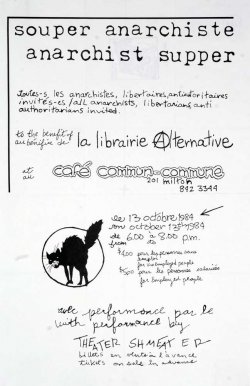 souper anarchiste
anarchist supper
toutes-s les anarchistes, libertaires, antiautoritaires
invité-es / all anarchists, libertarians, anti
authoritarians invited.
to the benefit of
au bénéfice de la librairie Alternative
et au café commun-commune
201 milton
892 3344
le 13 octobre 1984
on october 13th 1984
de 6.00 à 8.00 p.m.
from to
pour les personnes sans
emploi
for unemployed people
pour les personnes salariées
for employed people
avec performance par le
with performance by
THEATER SHMEATER
billets en vente à l'avance
tickets on sale in advance